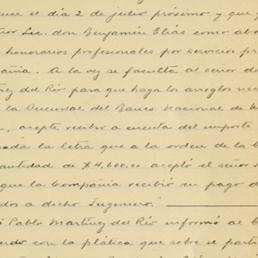 ence el día 2 de julio próximo y que
ñor Lic. don Benjamín Elías como abo
honorarios profesionales por servicios pr
añía. A la vez se faculta al señor do
ñez del Río para que haga los arreglos nec
la Sucursal del Banco Nacional de
, acepte recibir a cuenta del importe
la letra que a la orden de la C
cantidad de $4,600.00 aceptó el señor
que la Compañía recibió en pago d
dos a dicho Ingeniero.
Pablo Martínez del Río informó al C
erdo con la plática que sobre el parti